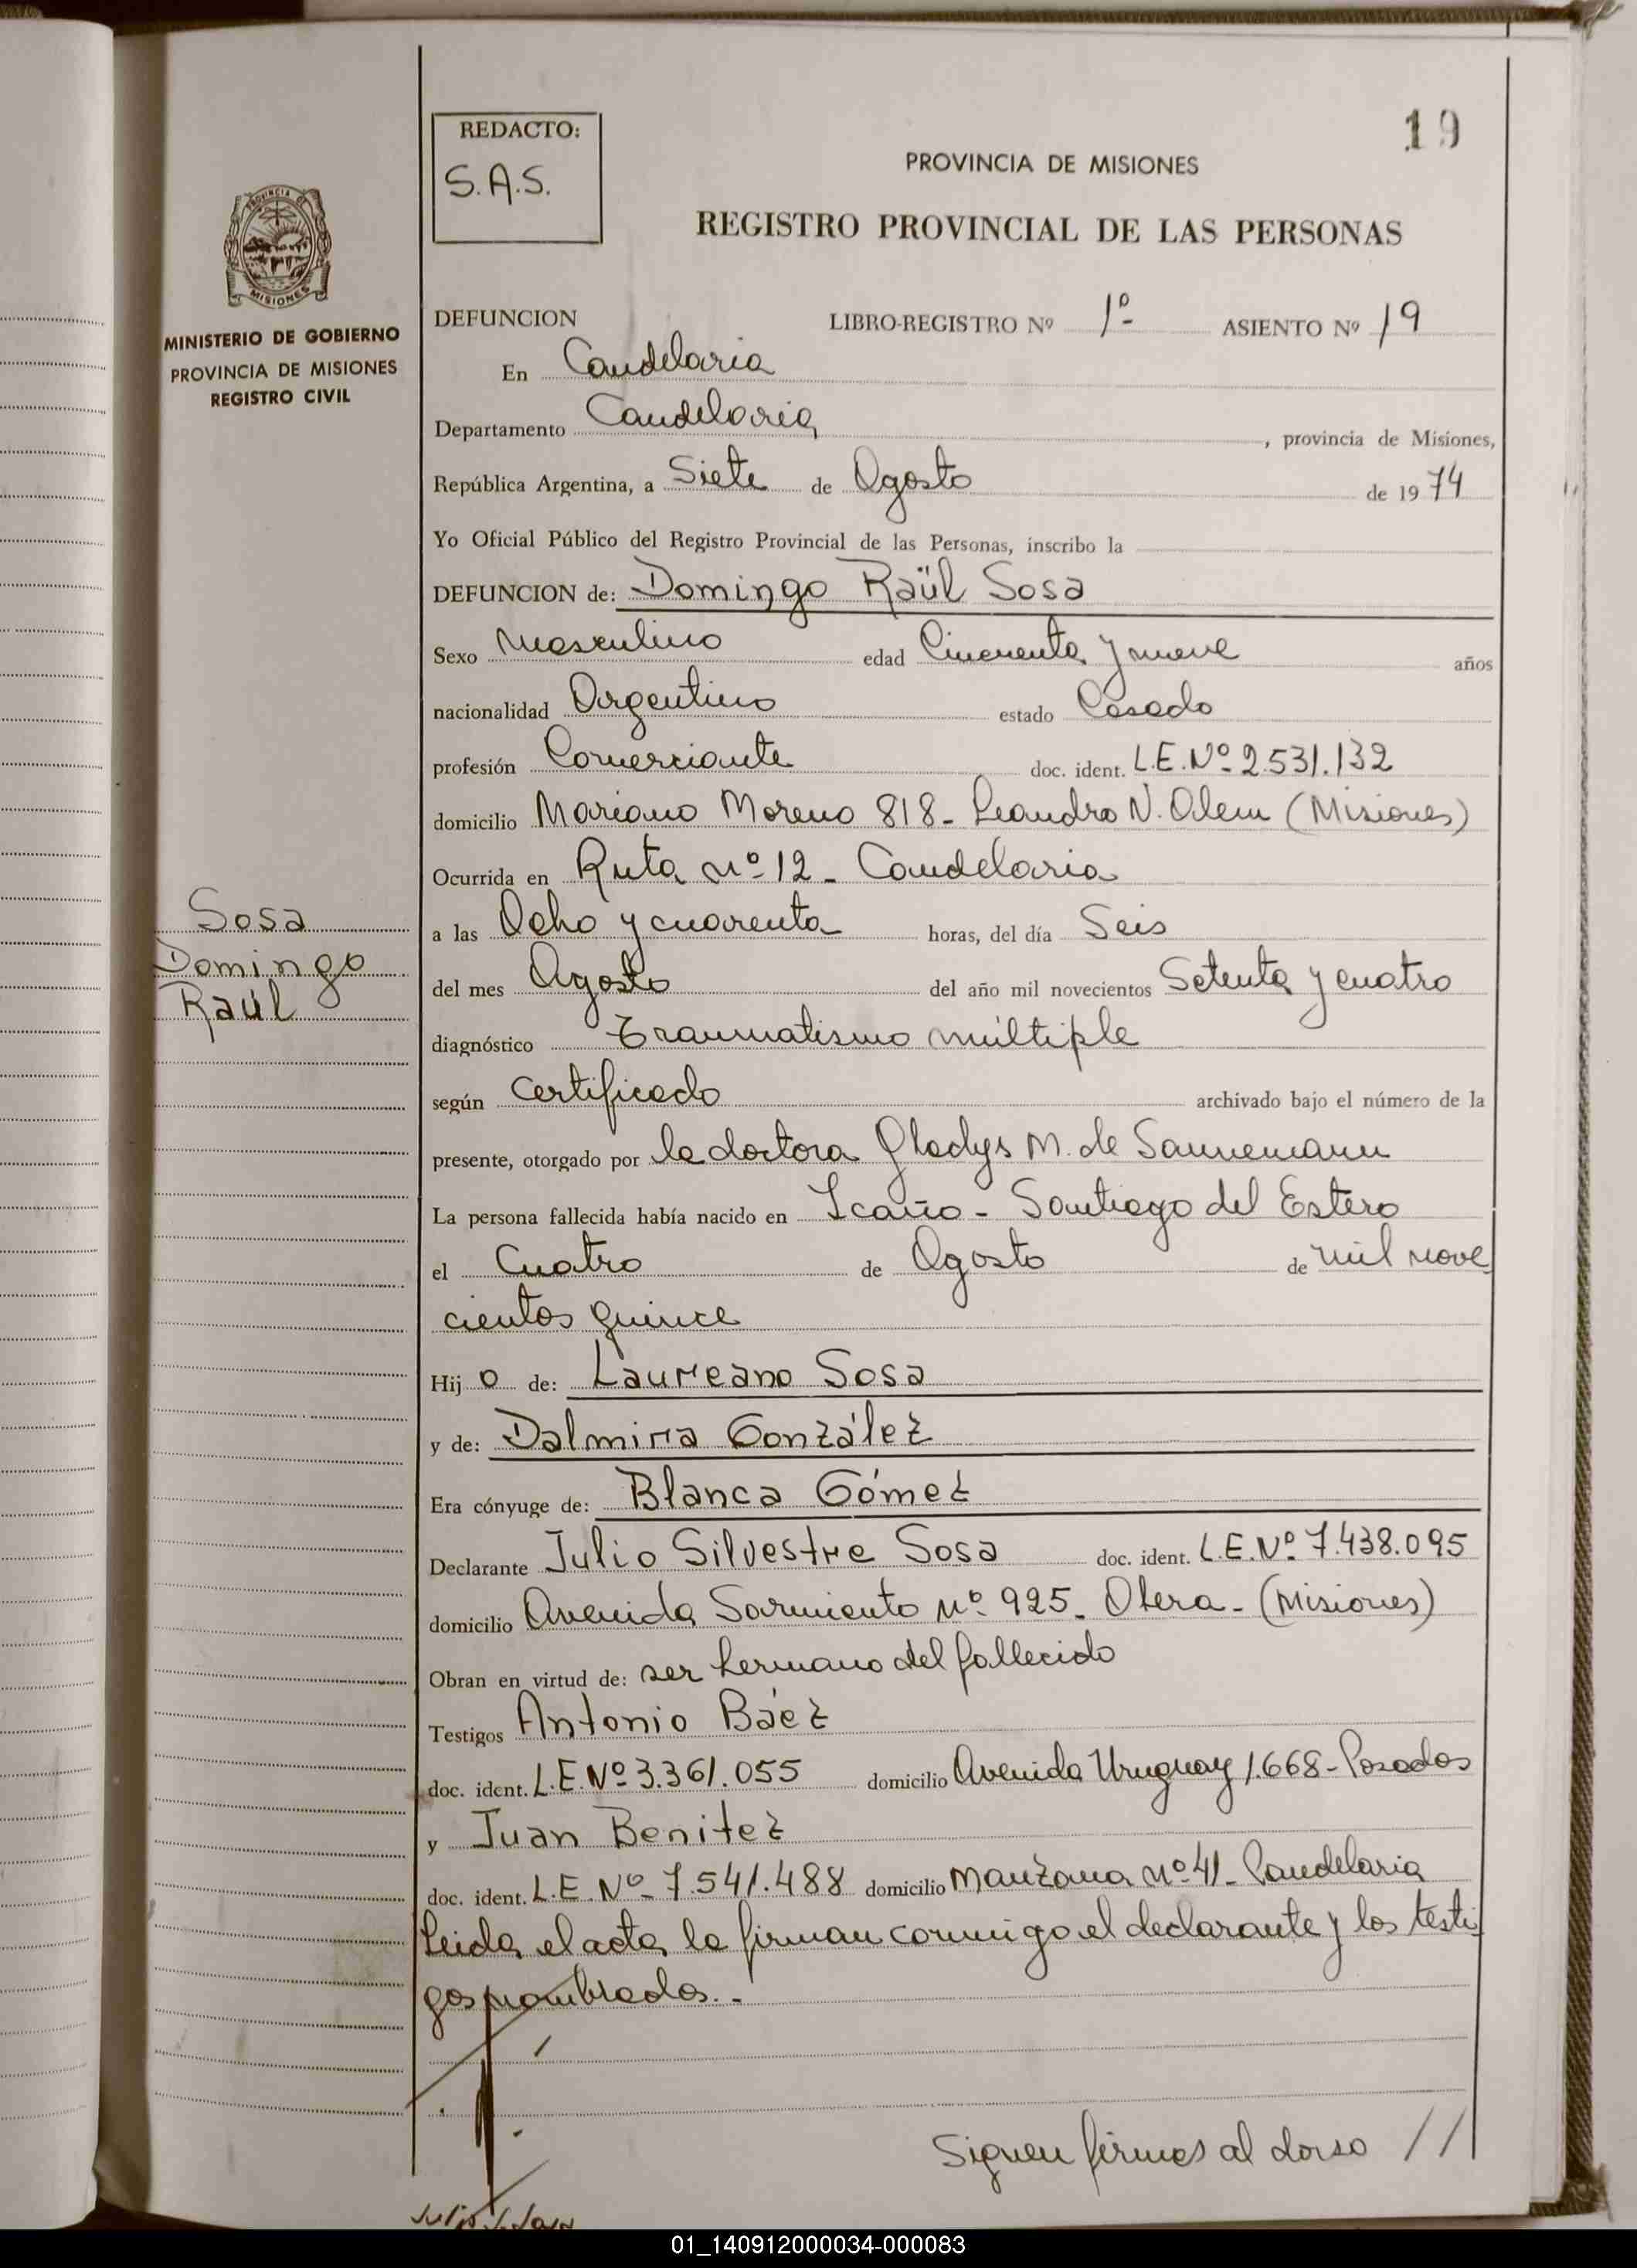 19
REDACTO:
S.A.S.
PROVINCIA DE MISIONES
REGISTRO PROVINCIAL DE LAS PERSONAS
PROVINCIA DE
MISIONES
MINISTERIO DE GOBIERNO
PROVINCIA DE MISIONES
REGISTRO CIVIL
DEFUNCION LIBRO-REGISTRO Nº 1º ASIENTO Nº 19
En Candelaria
Departamento Candelaria, provincia de Misiones,
República Argentina, a Siete de Agosto de 1974
Yo Oficial Público del Registro Provincial de las Personas, inscribo la
DEFUNCION de: Domingo Raúl Sosa
Sexo Masculino edad Cincuenta y nueve años
nacionalidad Argentino estado Casado
profesión Comerciante doc. ident. L.E. Nº 2.531.132
domicilio Mariano Moreno 818 - Leandro N. Alem (Misiones)
Ocurrida en Ruta nº 12 - Candelaria
a las Ocho y cuarenta horas, del día Seis
del mes Agosto del año mil novecientos Setenta y cuatro
diagnóstico Traumatismo múltiple
según Certificado archivado bajo el número de la
presente, otorgado por la doctora Gladys M. de Sannemann
La persona fallecida había nacido en Icaño - Santiago del Estero
el Cuatro de Agosto de mil nove
cientos quince
Hijo de: Laureano Sosa
y de: Dalmira González
Era cónyuge de: Blanca Gómez
Declarante Julio Silvestre Sosa doc. ident. L.E. Nº 7.438.095
domicilio Avenida Sarmiento nº 925 - Obera - (Misiones)
Obran en virtud de: ser hermano del fallecido
Testigos Antonio Báez
doc. ident. L.E. Nº 3.361.055 domicilio Avenida Uruguay 1.668 - Posadas
y Juan Benitez
doc. ident. L.E. Nº 7.541.488 domicilio Manzana nº 41 - Candelaria
Leida el acta la firman conmigo el declarante y los testi
gos nombrados.-
Siguen firmas al dorso //
Sosa
Domingo
Raúl
01_140912000034-000083